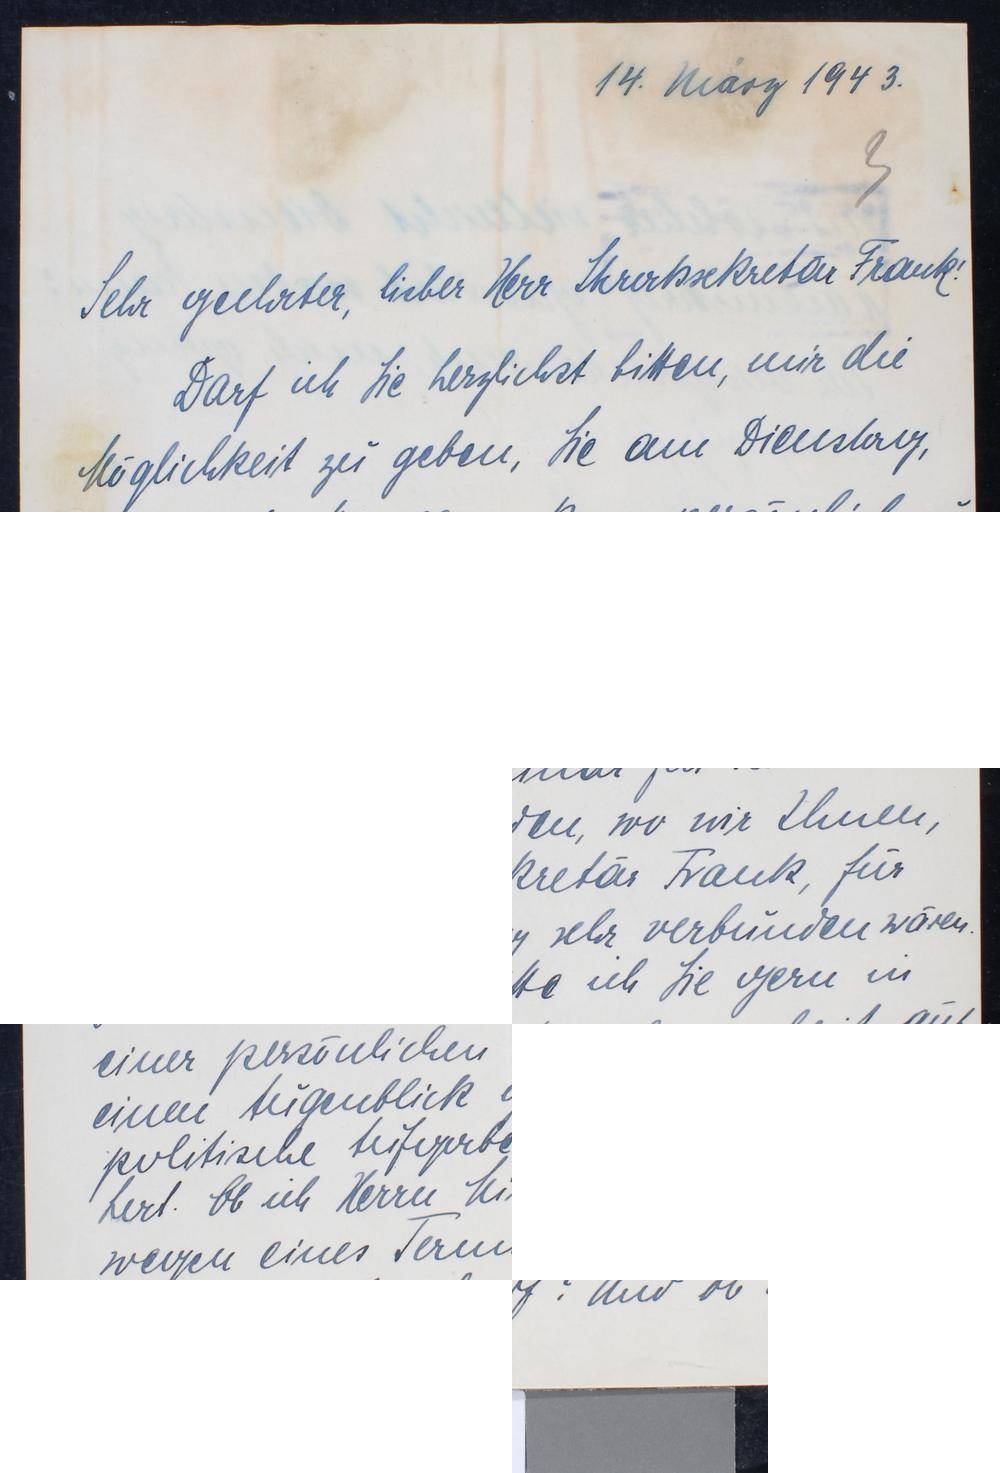 14. März 1943.
Sehr geehrter, lieber Herr Staatssekretär Frank!
Darf ich Sie herzlichst bitten, mir die
Möglichkeit zu geben, Sie am Dienstag,
wo wir Ihnen,
Frank, für
sehr verbunden wären.
ich Sie gern in
einer persönlichen
einen Augenblick
politische
hert. Ob ich Herrn
wegen eines
? Und ob